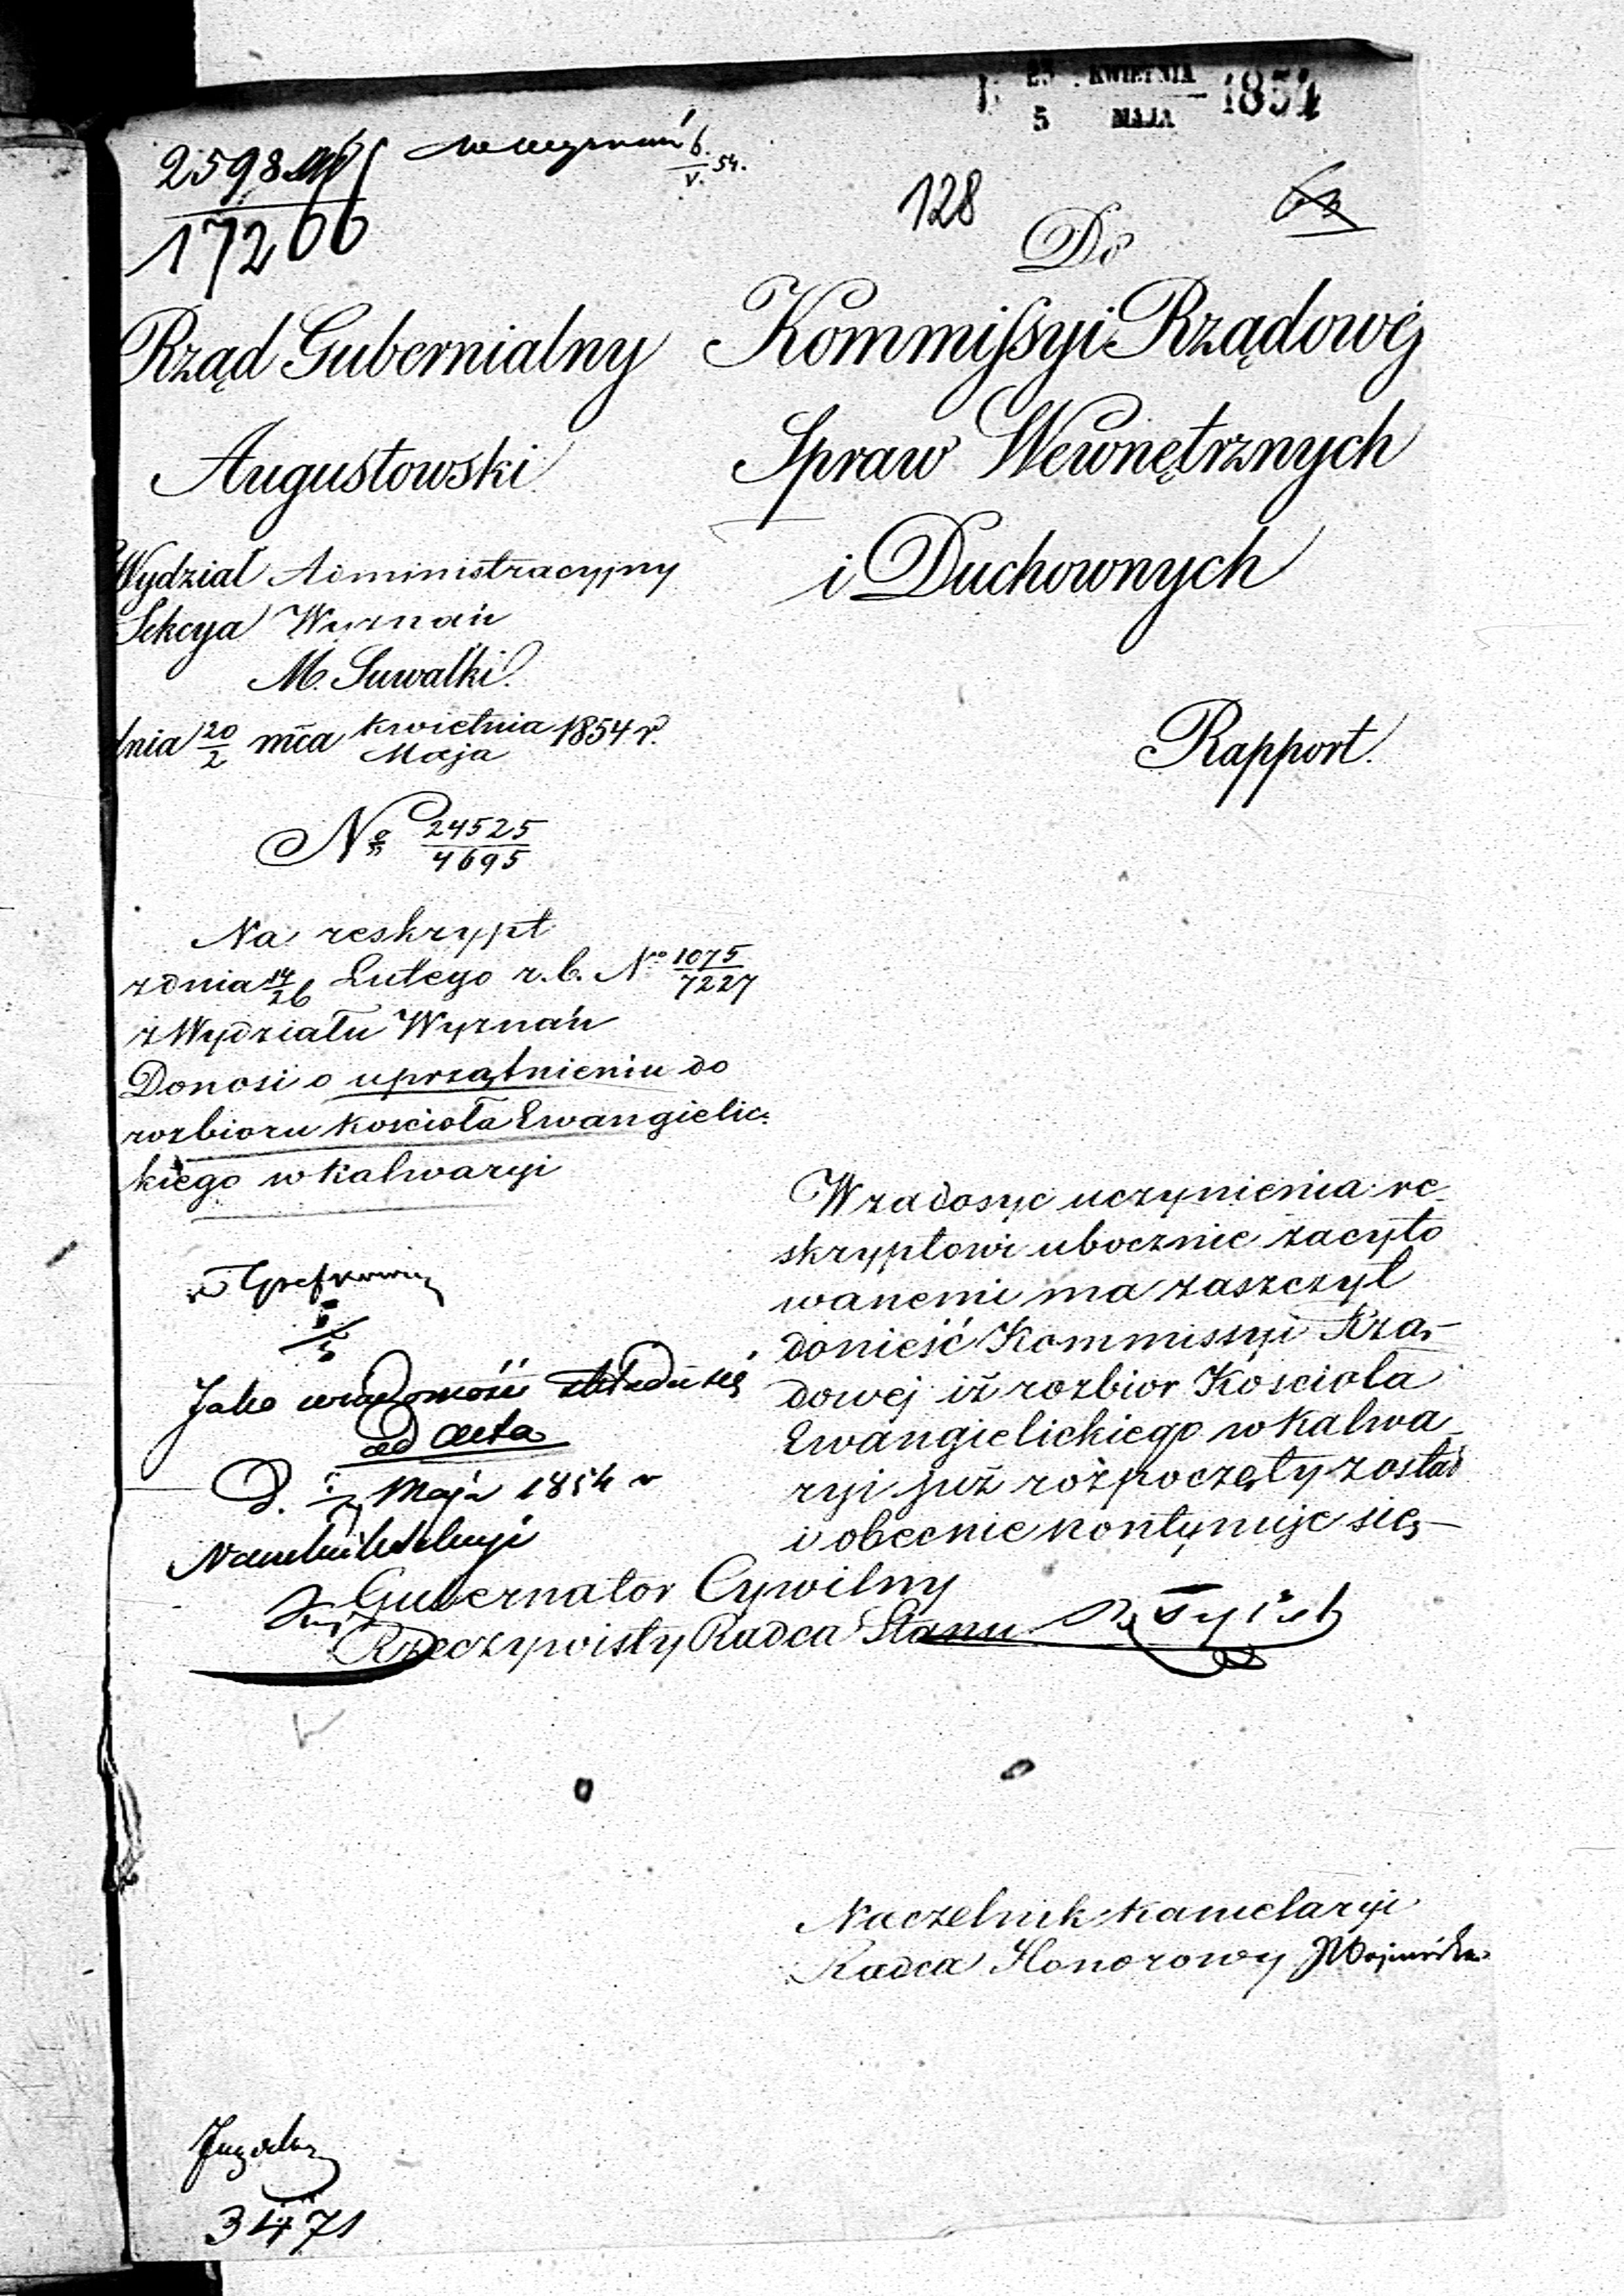 23 KWIETNIA
5 MAJA 1854
2598
17266
6.
V. 54.
128
63
Do
Kommissyi Rządowéj
Spraw Wewnętrznych
i Duchownych
Rapport.
Rząd Gubernialny
Augustowski
Wydział Administracyjny
Sekcya Wyznań
M. Suwałki.
dnia 20/2 mca Kwietnia/Maja 1854 r.
No 24525/4695
Na reskrypt
z dnia 14/26 Lutego r. b. No 1075/7227
z Wydziału Wyznań
Donosi o uprzątnieniu do
rozbioru kościoła Ewangielic:
kiego w Kalwaryi
Jako wiadomość składa się
ad acta
D. Maja 1854 r
Wzadosyć uczynienia re-
skryptowi ubocznie zacyto
wanemi ma zaszczyt
donieść Kommissyi Rzą-
dowej iż rozbior Kościoła
Ewangielickiego w Kalwa-
ryi już rozpoczęty został
i obecnie kontynuje się
Gubernator Cywilny
Rzeczywisty Radca Stanu
Naczelnik Kancelaryi
Radca Honorowy
3471